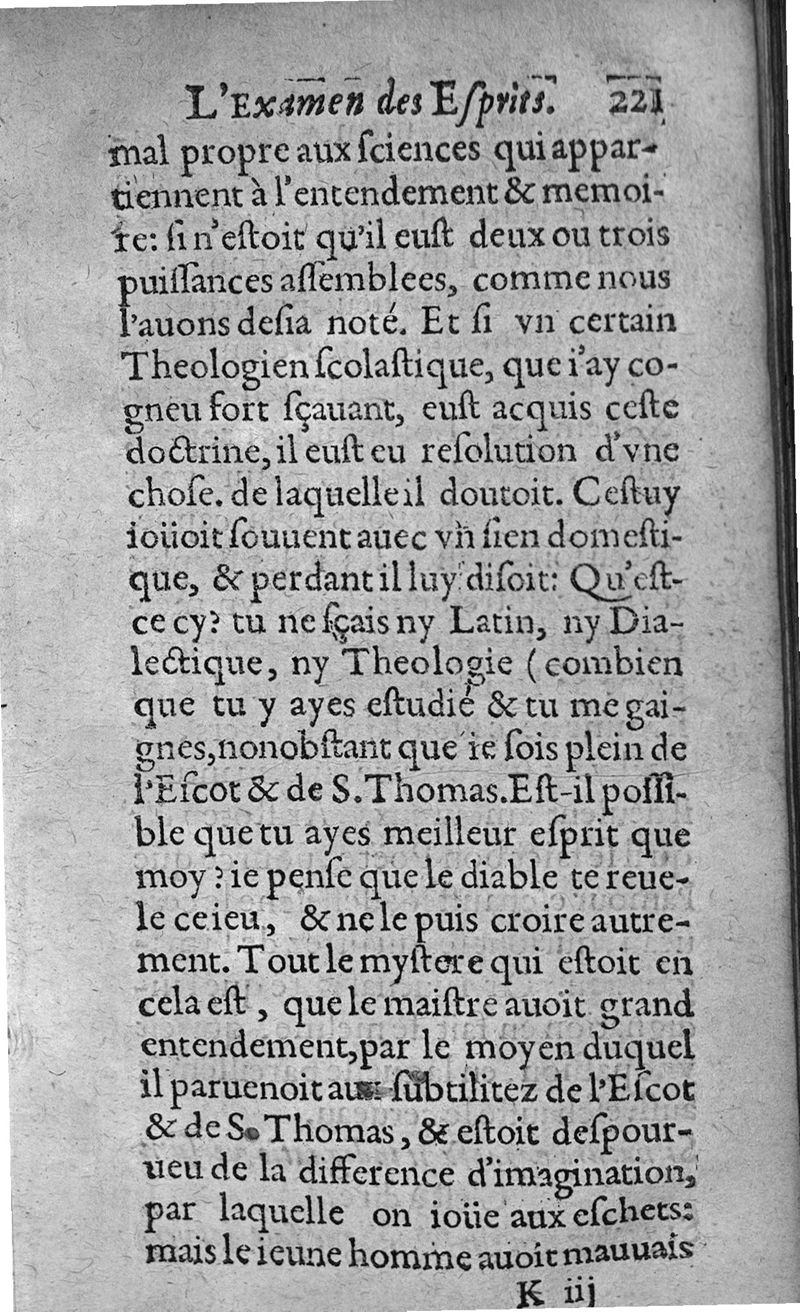 L'Examen des Eſprits. 221
mal propre aux ſciences qui appar-
tiennent à l'entendement & memoi-
re: ſi n'eſtoit qu'il euſt deux ou trois
puiſſances aſſemblees, comme nous
l'auons deſia noté. Et ſi vn certain
Theologien ſcolaſtique, que i'ay co-
gneu fort ſçauant, euſt acquis ceſte
doctrine, il euſt eu reſolution d'vne
choſe. de laquelle il doutoit. Ceſtuy
ioüoit ſouuent auec vn ſien domeſti-
que, & perdant il luy diſoit: Qu'eſt-
ce cy? tu ne ſçais ny Latin, ny Dia-
lectique, ny Theologie (combien
que tu y ayes eſtudié & tu me gai-
gnes, nonobſtant que ie ſois plein de
l'Eſcot & de S. Thomas. Eſt-il poſſi-
ble que tu ayes meilleur eſprit que
moy? ie penſe que le diable te reue-
le ce ieu, & ne le puis croire autre-
ment. Tout le myſtere qui eſtoit en
cela eſt, que le maiſtre auoit grand
entendement, par le moyen duquel
il paruenoit aux ſubtilitez de l'Eſcot
& de S. Thomas, & eſtoit deſpour-
ueu de la difference d'imagination,
par laquelle on ioüe aux eſchets:
mais le ieune homme auoit mauuais
K iij